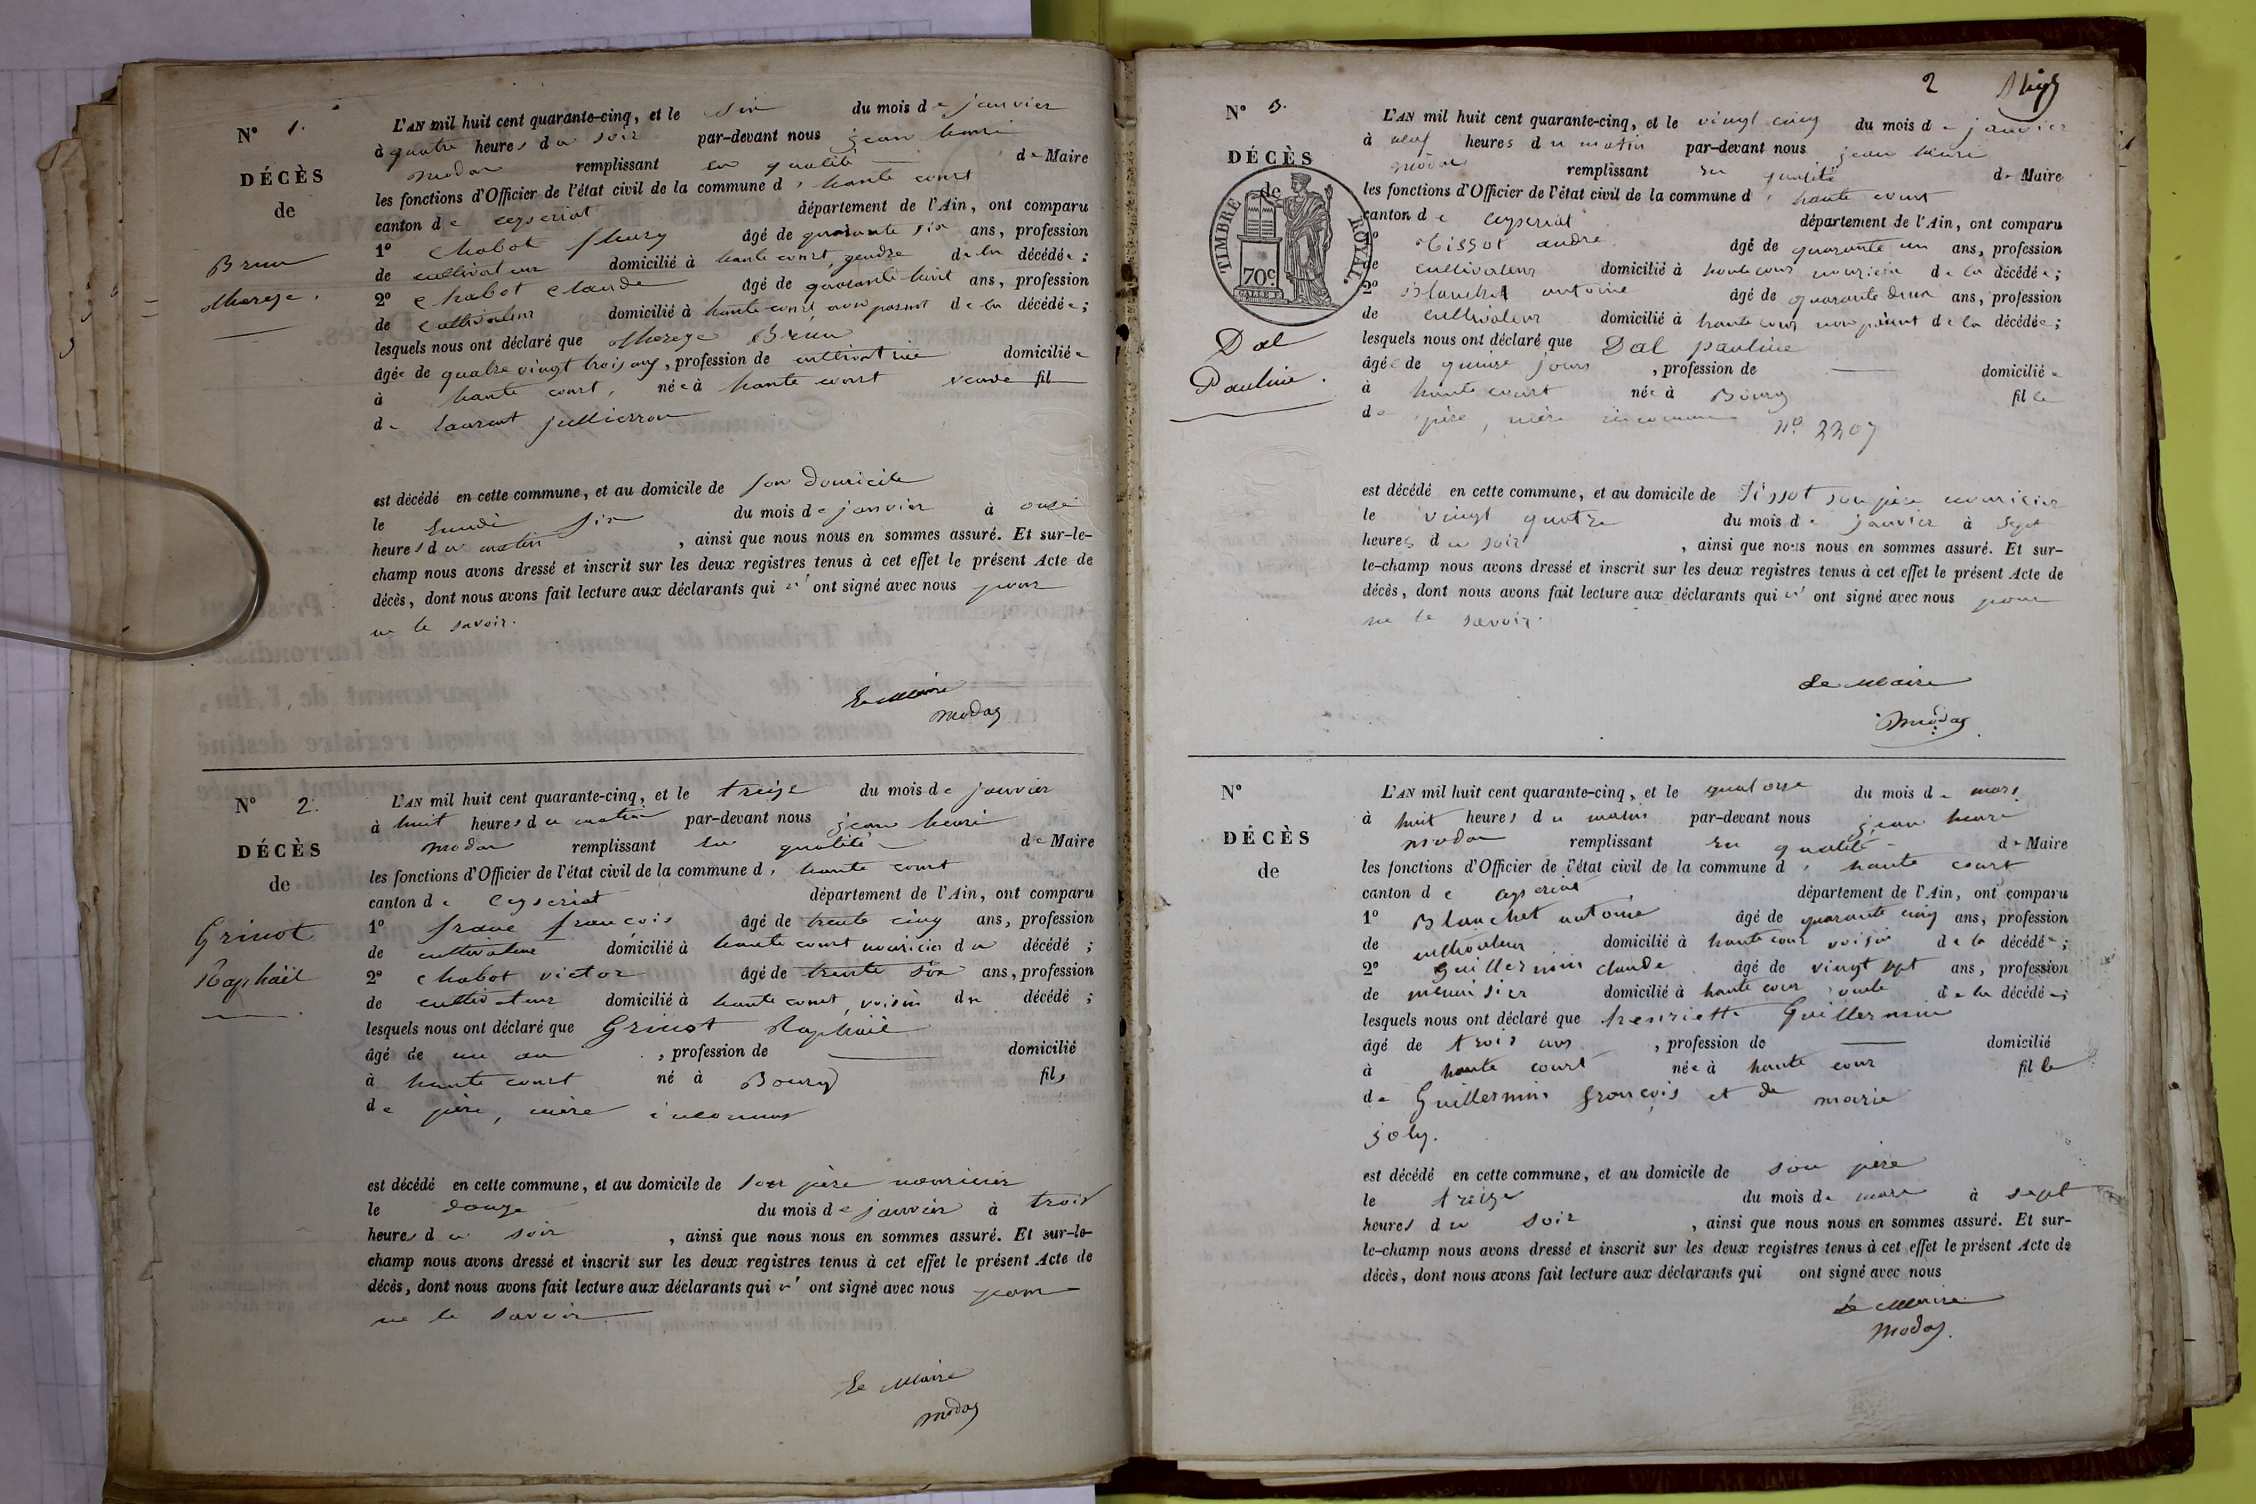 N° 1.
DÉCÈS
de
Brun
therese.
L'AN mil huit cent quarante-cinq, et le six du mois de janvier
à quatre heures du soir par-devant nous jean henri
modas remplissant en qualité de Maire
les fonctions d'Officier de l'état civil de la commune d' haute court
canton de ceyseriat département de l'Ain, ont comparu
1° chabot fleury âgé de quarante six ans, profession
de cultivateur domicilié à haute court, gendre de la décédée;
2° chabot claude âgé de quarante huit ans, profession
de cultivateur domicilié à haute court non parent de la décédée;
lesquels nous ont déclaré que therese Brun
âgée de quatre vingt trois ans, profession de cultivatrice domiciliée
à haute court, née à haute court veuve fil
de laurent
est décédé en cette commune, et au domicile de son domicile
le lundi six du mois de janvier à onze
heures du matin, ainsi que nous nous en sommes assuré. Et sur-le-
champ nous avons dressé et inscrit sur les deux registres tenus à cet effet le présent Acte de
décès, dont nous avons fait lecture aux déclarants qui n' ont signé avec nous pour
ne le savoir.
Le Maire
modas
N° 2.
DÉCÈS
de
Grinot
Raphaël
L'AN mil huit cent quarante-cinq, et le treize du mois de janvier
à huit heures du matin par-devant nous jean henri
modas remplissant en qualité de Maire
les fonctions d'Officier de l'état civil de la commune d' haute court
canton de ceyseriat département de l'Ain, ont comparu
1° françois âgé de trente cinq ans, profession
de cultivateur domicilié à haute court nouricier du décédé;
2° chabot victor âgé de trente six ans, profession
de cultivateur domicilié à haute court, voisin du décédé;
lesquels nous ont déclaré que Grinot Raphaël
âgé de un an, profession de domicilié
à haute court né à Bourg fils
de père, mère inconnus
est décédé en cette commune, et au domicile de son père nouricier
le douze du mois de janvier à trois
heures du soir, ainsi que nous nous en sommes assuré. Et sur-le-
champ nous avons dressé et inscrit sur les deux registres tenus à cet effet le présent Acte de
décès, dont nous avons fait lecture aux déclarants qui n' ont signé avec nous pour
ne le savoir
Le Maire
modas
2
N° 3.
DÉCÈS
de
TIMBRE ROYAL.
70c
Dal
Pauline.
L'AN mil huit cent quarante-cinq, et le vingt cinq du mois de janvier
à neuf heures du matin par-devant nous jean henri
modas remplissant en qualité de Maire
les fonctions d'Officier de l'état civil de la commune d' haute court
canton de ceyseriat département de l'Ain, ont comparu
1° tissot andre âgé de quarante un ans, profession
de cultivateur domicilié à haute cour nouricier de la décédée;
2° Blanchet antoine âgé de quarante deux ans, profession
de cultivateur domicilié à haute cour non parent de la décédée;
lesquels nous ont déclaré que Dal pauline
âgée de quinze jours, profession de domiciliée
à haute court née à Bourg fille
de père, mère inconnus n° 2207
est décédé en cette commune, et au domicile de tissot son père nouricier
le vingt quatre du mois de janvier à sept
heures du soir, ainsi que nous nous en sommes assuré. Et sur-
le-champ nous avons dressé et inscrit sur les deux registres tenus à cet effet le présent Acte de
décès, dont nous avons fait lecture aux déclarants qui n' ont signé avec nous pour
ne le savoir.
Le Maire
modas
N°
DÉCÈS
de
L'AN mil huit cent quarante-cinq, et le quatorze du mois de mars
à huit heures du matin par-devant nous jean henri
modas remplissant en qualité de Maire
les fonctions d'Officier de l'état civil de la commune d' haute court
canton de ceyseriat département de l'Ain, ont comparu
1° Blanchet antoine âgé de quarante cinq ans, profession
de cultivateur domicilié à haute cour voisin de la décédée;
2° Guillermin claude âgé de vingt sept ans, profession
de menuisier domicilié à haute cour oncle de la décédée;
lesquels nous ont déclaré que henriette Guillermin
âgé de trois ans, profession de domicilié
à haute court née à haute cour fille
de Guillermin françois et de marie
joly.
est décédé en cette commune, et au domicile de son père
le treize du mois de mars à sept
heures du soir, ainsi que nous nous en sommes assuré. Et sur-
le-champ nous avons dressé et inscrit sur les deux registres tenus à cet effet le présent Acte de
décès, dont nous avons fait lecture aux déclarants qui ont signé avec nous
Le Maire
modas.